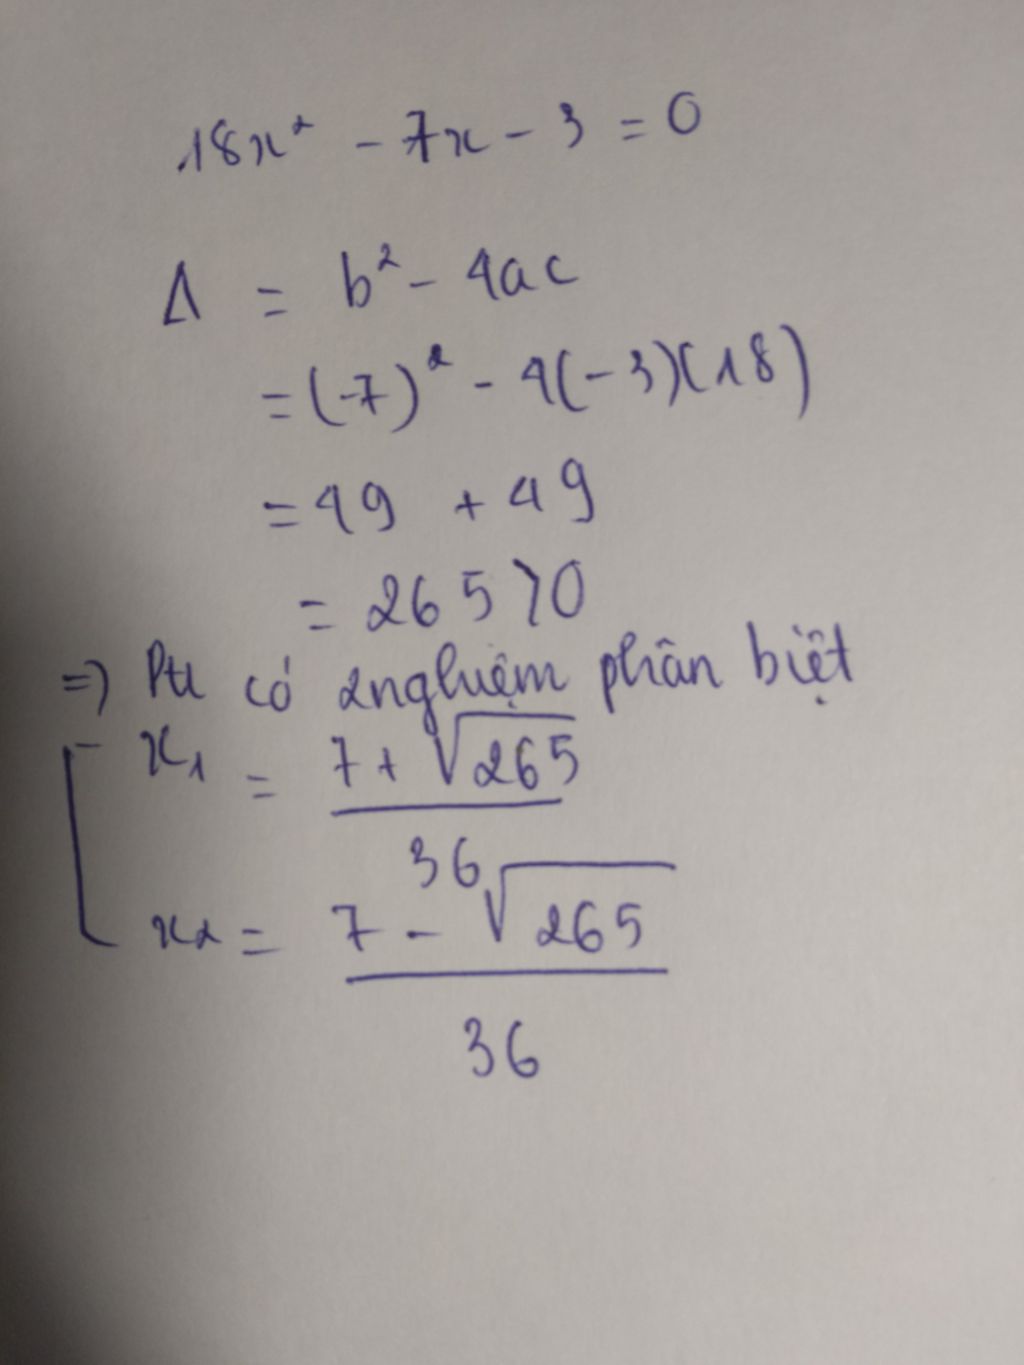 18x² - 7x - 3 = 0
Δ = b² - 4ac
= (-7)² - 4(-3)(18)
= 49 + 49
= 265 > 0
=> Pt có 2 nghiệm phân biệt
x₁ = 7 + √265
36
x₂ = 7 - √265
36